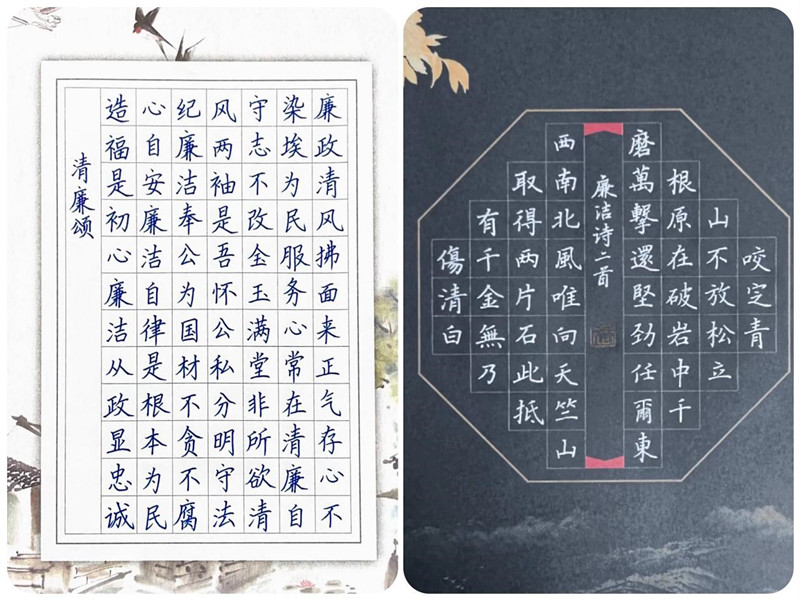 廉政清风拂面来正气存心不
染埃为民服务心常在清廉自
守志不改金玉满堂非所欲清
风两袖是吾怀公私分明守法
纪廉洁奉公为国材不贪不腐
心自安廉洁自律是根本为民
造福是初心廉洁从政显忠诚
清廉颂
咬定青
山不放松立
根原在破岩中千
磨萬撃還堅劲任爾東
廉洁诗二首
西南北風唯向天竺山
取得两片石此抵
有千金無乃
傷清白